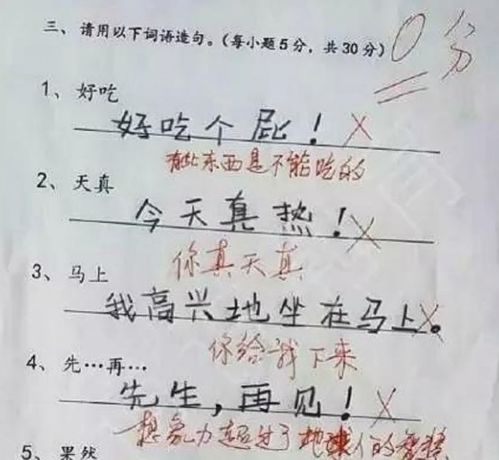 三、请用以下词语造句。（每小题5分，共30分） 0分
1、好吃
好吃个屁！
有些东西是不能吃的
2、天真
今天真热！
你真天真
3、马上
我高兴地坐在马上。
你给我下来
4、先…再…
先生，再见！
想象力超过了地球人的智慧
5、果然